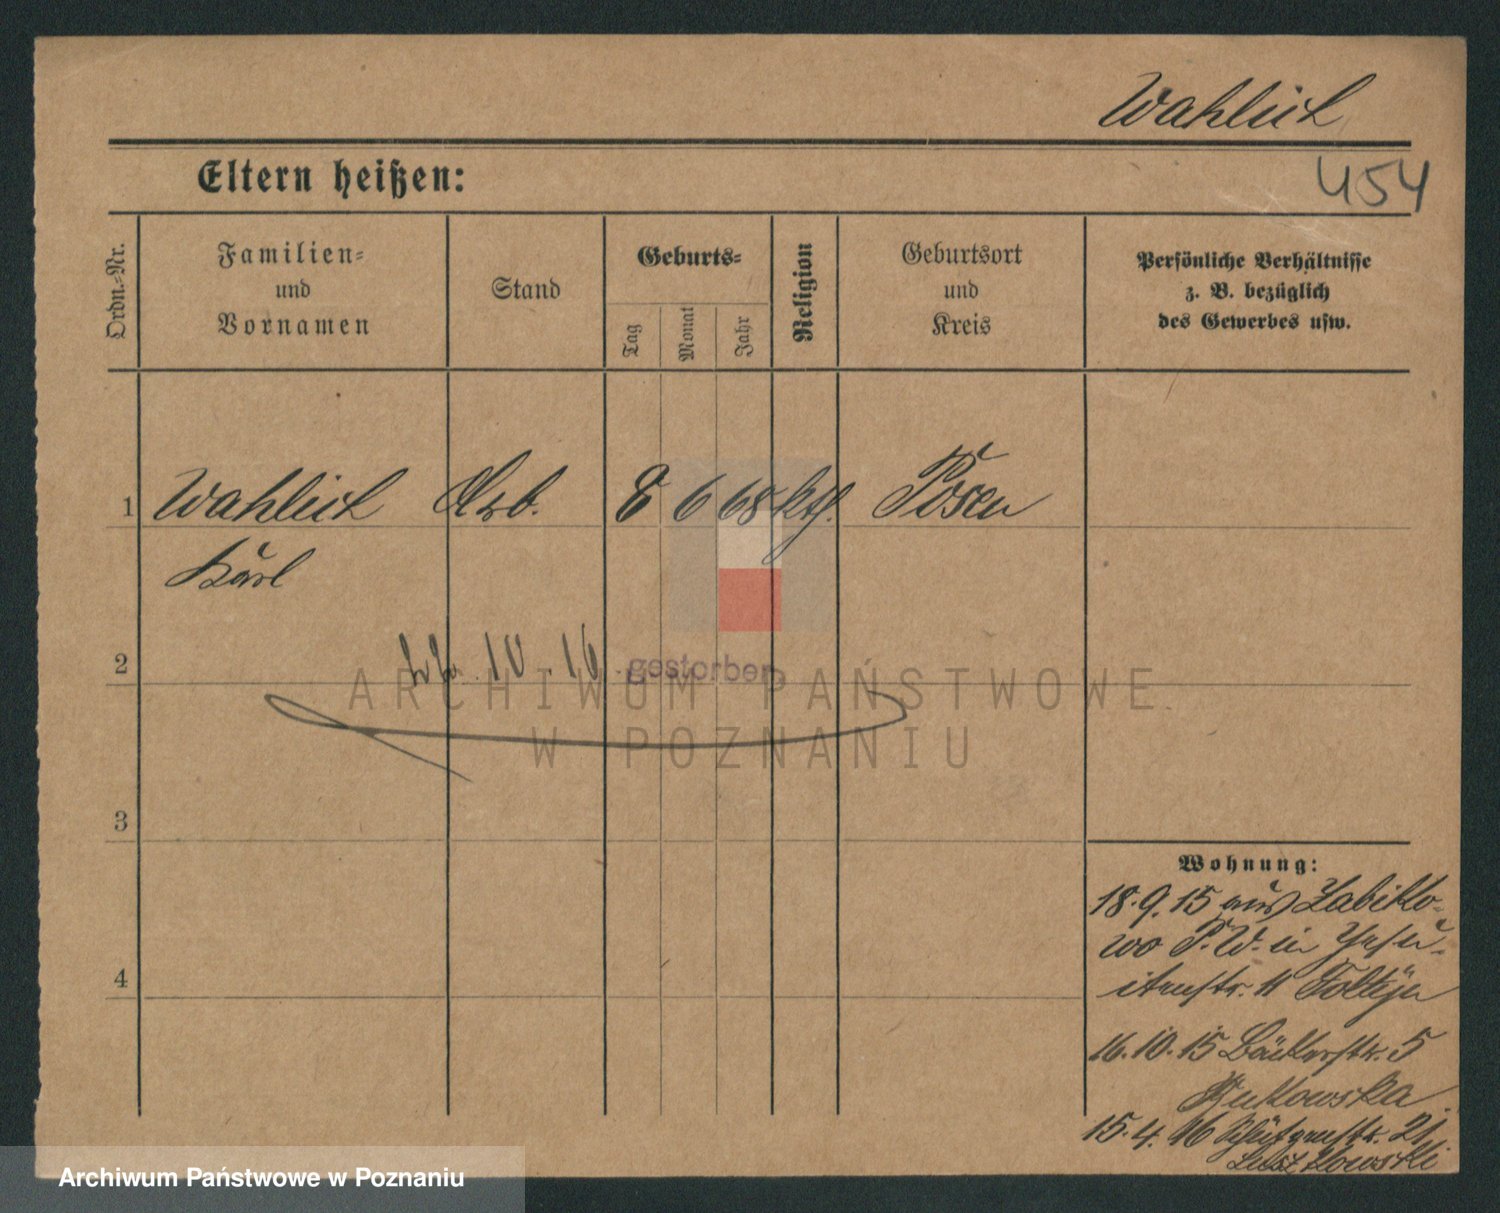 Wahlich
454
Eltern heißen:
Ordn.-Nr.
Familien-
und
Vornamen
Stand
Geburts-
Tag
Monat
Jahr
Religion
Geburtsort
und
Kreis
Persönliche Verhältnisse
z. B. bezüglich
des Gewerbes usw.
1 Wahlich Arb. 8 6 68 kth. Posen
Karl
2 10. 16 gestorben
ARCHIWUM PAŃSTWOWE
W POZNANIU
3
4
Wohnung:
18.9.15 aus Zabiko-
wo P.W. in Jesu-
itenstr. 11
16.10.15 Bäckerstr. 5
Rutkowska
15.4.16 Schützenstr. 21
Archiwum Państwowe w Poznaniu